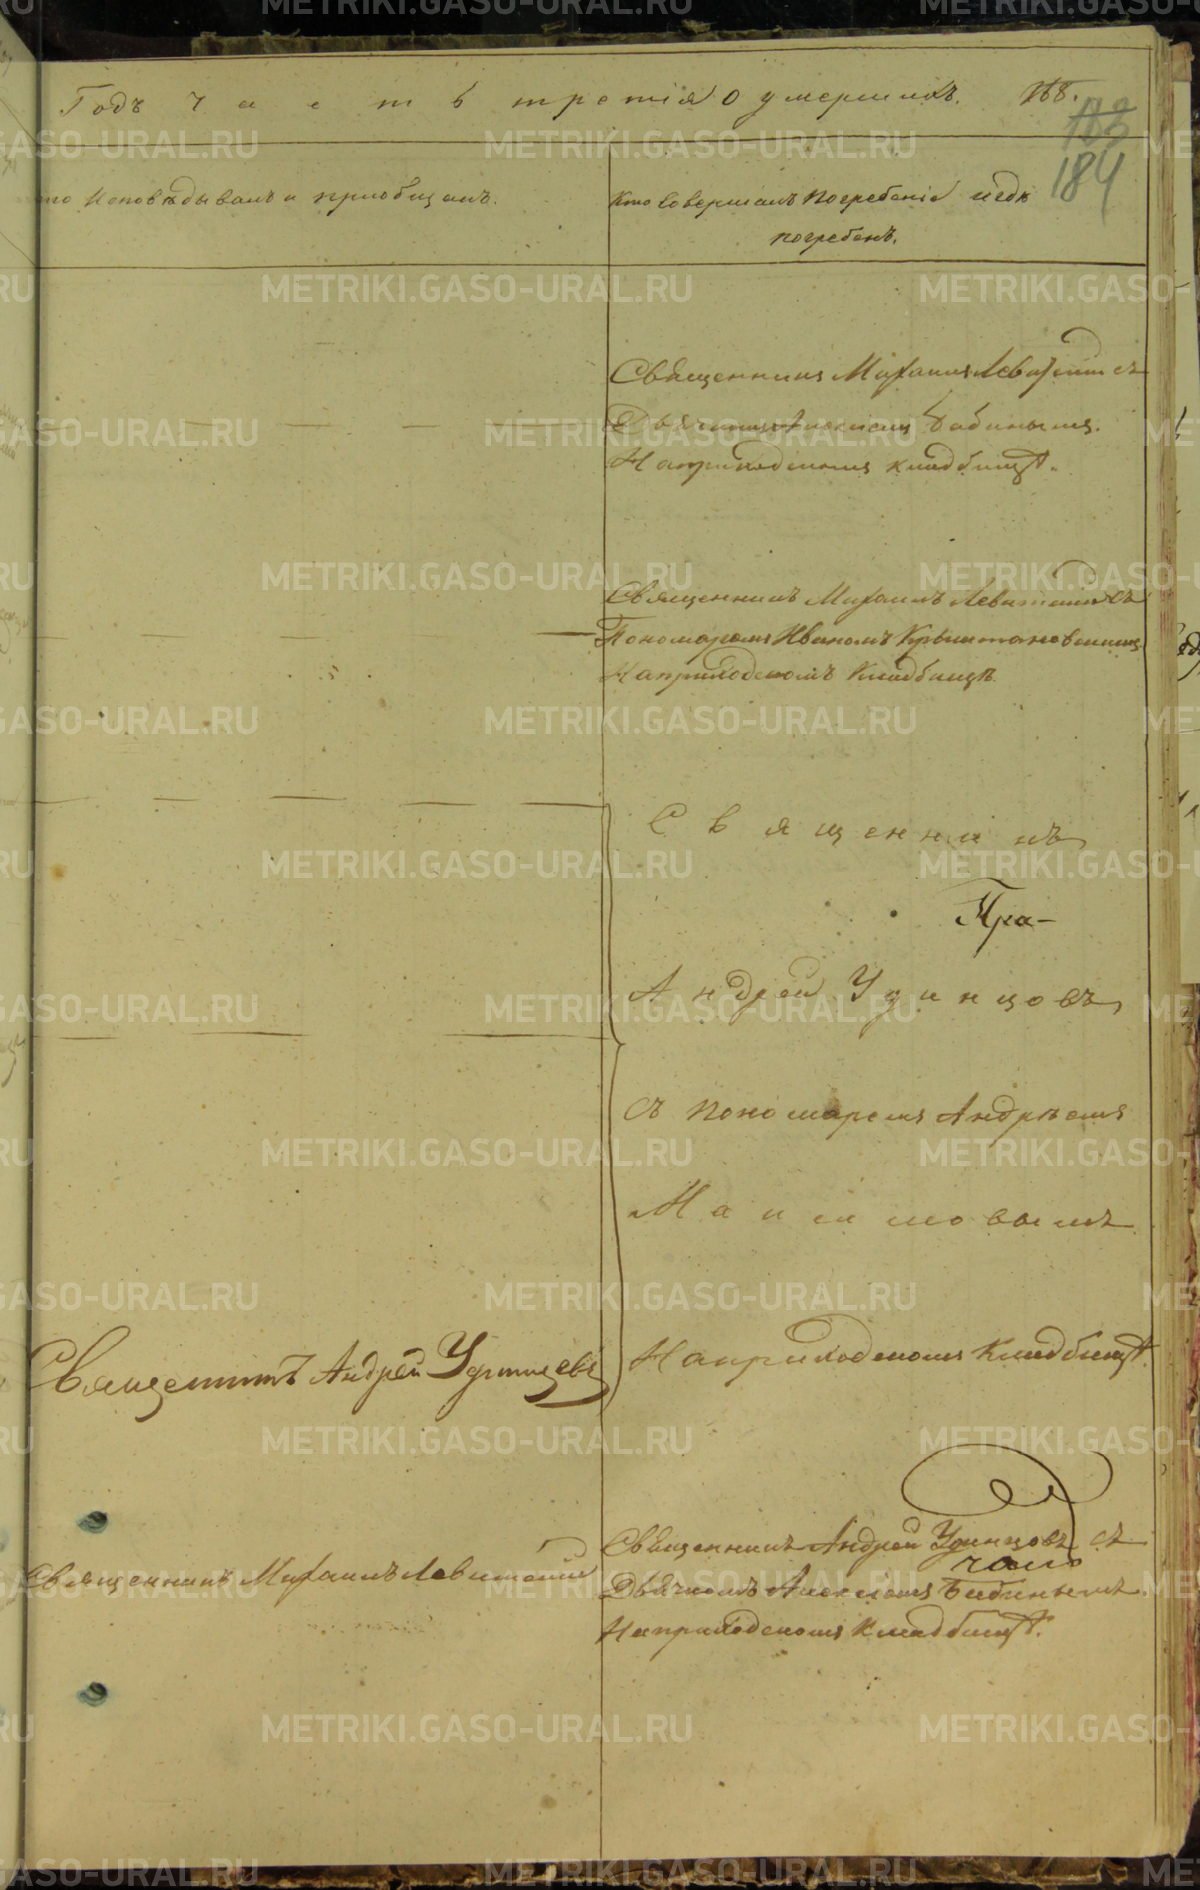 Годъ часть третія о умершихъ. 168.
183
184
кто Исповѣдывалъ и пріобщалъ.
Кто Совершалъ Погребеніе и гдѣ
погребенъ.
Священникъ Михаилъ Левитскій съ
Дьячкомъ Алексѣемъ Бабинымъ.
На приходскомъ кладбищѣ.
Священникъ Михаилъ Левитскій съ
Пономаремъ Иваномъ
На приходскомъ Кладбищѣ.
Священникъ
Пра-
Андрей Удинцовъ,
съ пономаремъ Андрѣемъ
На приходскомъ Кладбищѣ.
Священникъ Андрей Удинцевъ
Священникъ Андрей Удинцовъ съ
чало
Священникъ Михаилъ Левитскій
Дьячкомъ Алексѣемъ Бабинымъ.
На приходскомъ Кладбищѣ.
METRIKI.GASO-URAL.RU